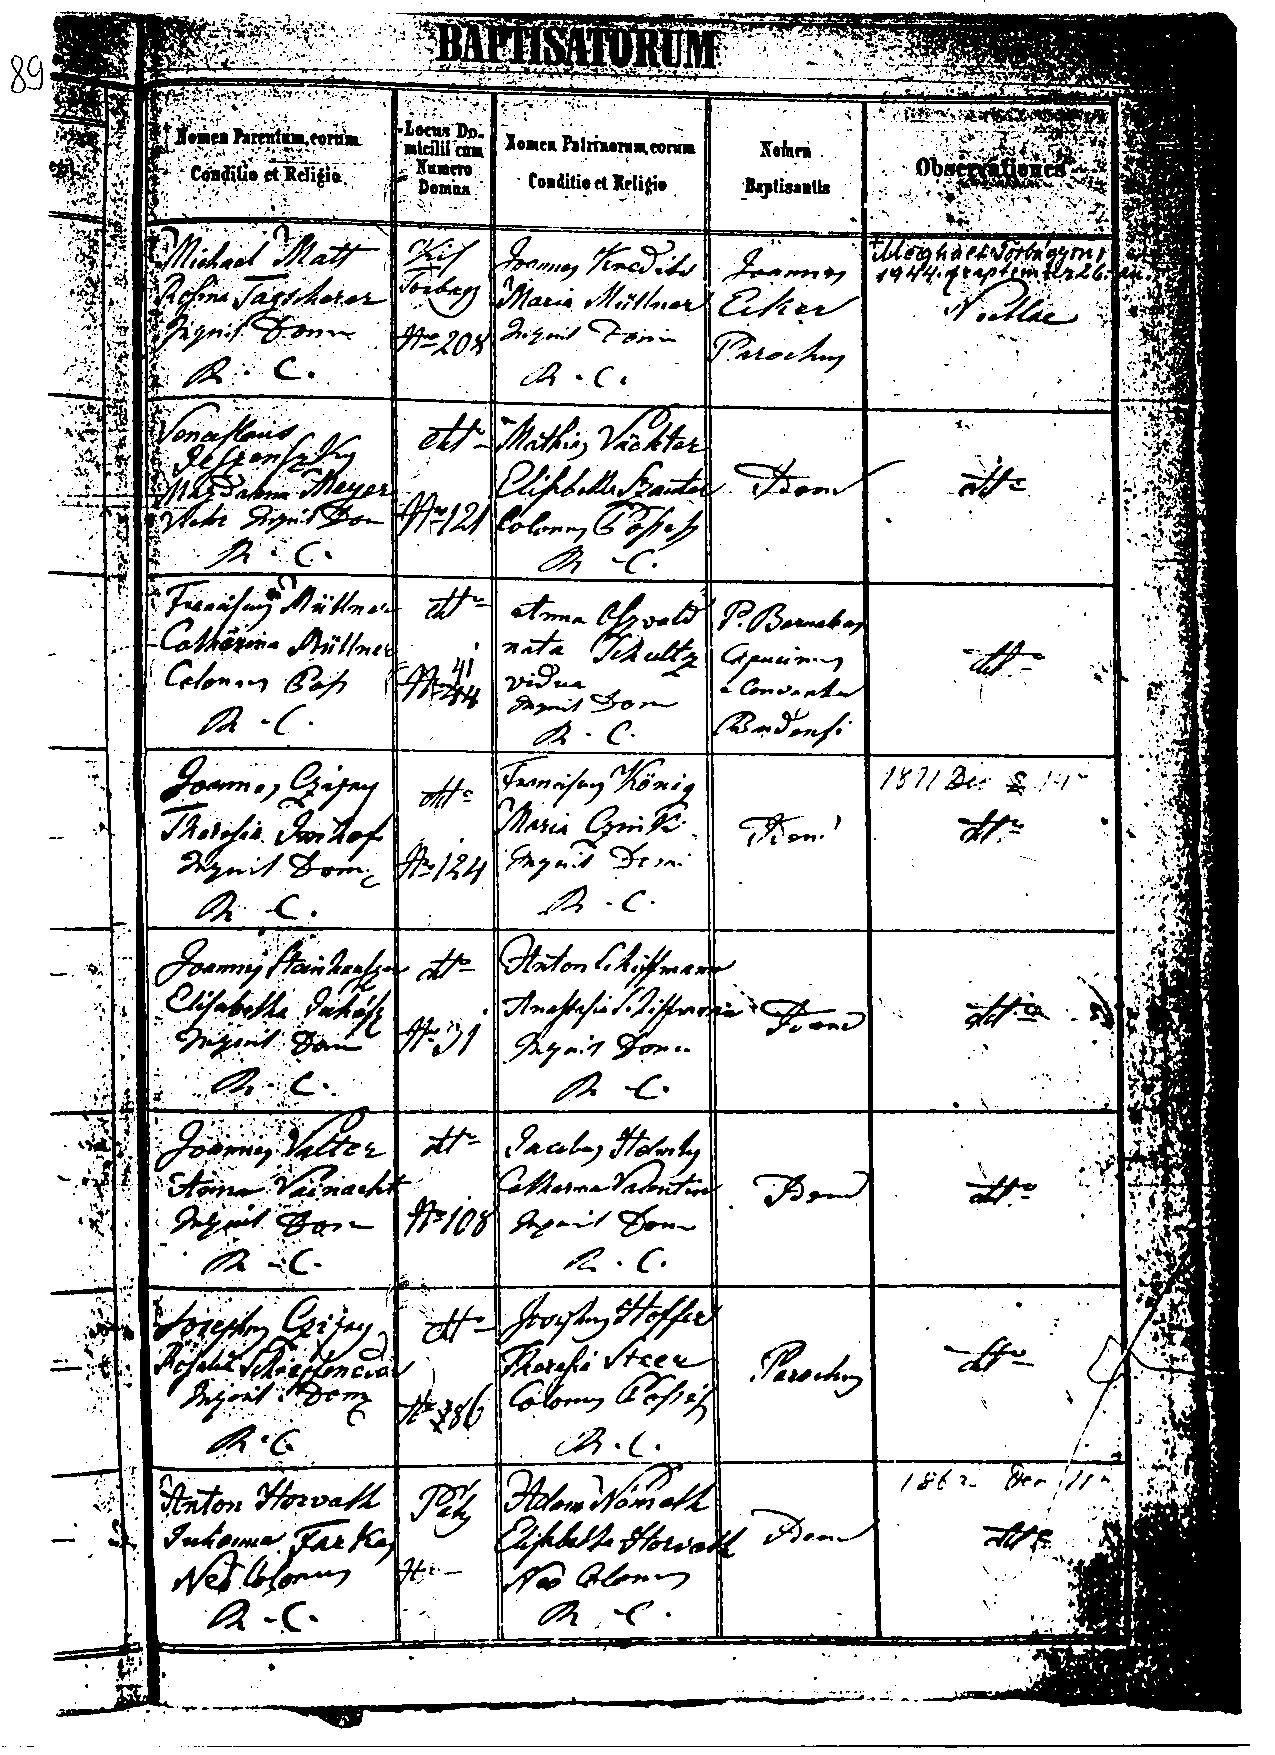 89
BAPTISATORUM
Nomen Parentum, eorum
Conditio et Religio
Locus Do-
micilii cum
Numero
Domus
Nomen Patrinorum, eorum
Conditio et Religio
Nomen
Baptisantis
Observationes
Michael Matt
Rosina Tagscherer
Inquil Dom
R. C.
Kis
Torbágy
Nro 208
Joannes
Maria Müllner
Inquil Dom
R. C.
Joannes
Ecker
Parochus
Meghalt Törbágyon
1944. szeptember 26-án.
Nullae
Magdalena Mayer
Inquil Dom
R. C.
dtto
Nro 121
Mathias Vächter
Elisabetha Szauter
Colonus Possess
R. C.
Idem
dtto
Franciscus Müllner
Catharina Müllner
Colonus Poss
R. C.
dtto
41
Nro
Anna Oswald
nata Schultz
vidua
Inquil Dom
R. C.
P. Barnabas
Capucinus
e Conventu
Budensi
dtto
Joannes Czigny
Theresia Imhof
Inquil Dom
R. C.
dtto
Nro 124
Franciscus König
Maria
Inquil Dom
R. C.
Idem
1871 Dec
dtto
Joannes Steinhauszer
Elisabetha Juhász
Inquil Dom
R. C.
dtto
Nro 31
Anton Schiffmann
Anastasia Schiffmann
Inquil Dom
R. C.
Idem
dtto
Joannes Valter
Anna Vainacht
Inquil Dom
R. C.
dtto
Nro 108
Jacobus
Catharina Valentin
Inquil Dom
R. C.
Idem
dtto
Josephus Czigny
Rosalia
Inquil Dom
R. C.
dtto
Nro 186
Josephus Hoffer
Theresia Steer
Colonus Possess
R. C.
Parochus
dtto
Anton Horvath
Julianna Farkas
Neo Colonus
R. C.
Páty
Nro —
Adam Németh
Elisabetha Horvath
Neo Colonus
R. C.
Idem
1862 Dec 11
dtto